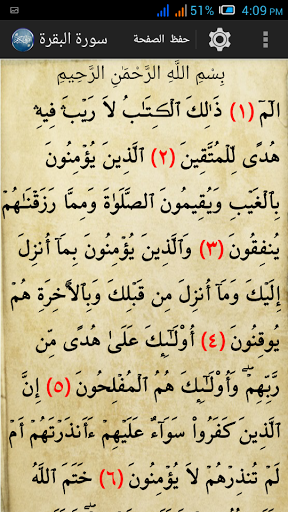 51% 4:09 PM
سورة البقرة حفظ الصفحة
بِسْمِ اللَّهِ الرَّحْمَٰنِ الرَّحِيمِ
الٓمٓ (١) ذَٰلِكَ ٱلْكِتَٰبُ لَا رَيْبَ فِيهِ
هُدًى لِّلْمُتَّقِينَ (٢) ٱلَّذِينَ يُؤْمِنُونَ
بِٱلْغَيْبِ وَيُقِيمُونَ ٱلصَّلَوٰةَ وَمِمَّا رَزَقْنَٰهُمْ
يُنفِقُونَ (٣) وَٱلَّذِينَ يُؤْمِنُونَ بِمَآ أُنزِلَ
إِلَيْكَ وَمَآ أُنزِلَ مِن قَبْلِكَ وَبِٱلْأَخِرَةِ هُمْ
يُوقِنُونَ (٤) أُو۟لَٰٓئِكَ عَلَىٰ هُدًى مِّن
رَّبِّهِمْ ۖ وَأُو۟لَٰٓئِكَ هُمُ ٱلْمُفْلِحُونَ (٥) إِنَّ
ٱلَّذِينَ كَفَرُوا۟ سَوَآءٌ عَلَيْهِمْ ءَأَنذَرْتَهُمْ أَمْ
لَمْ تُنذِرْهُمْ لَا يُؤْمِنُونَ (٦) خَتَمَ ٱللَّهُ